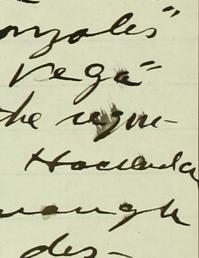 onzales"
Vega"
the requi-
Hacienda
nough
des-